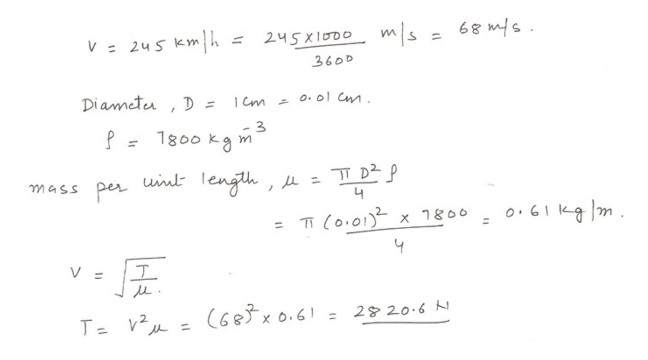 V = 245 km/h = 245×1000/3600 m/s = 68 m/s.
Diameter, D = 1cm = 0.01 cm.
ρ = 7800 kg m⁻³
mass per unit length, μ = π D² ρ/4
= π (0.01)² × 7800/4 = 0.61 kg/m.
V = √(T/μ).
T = V²μ = (68)² × 0.61 = 2820.6 N